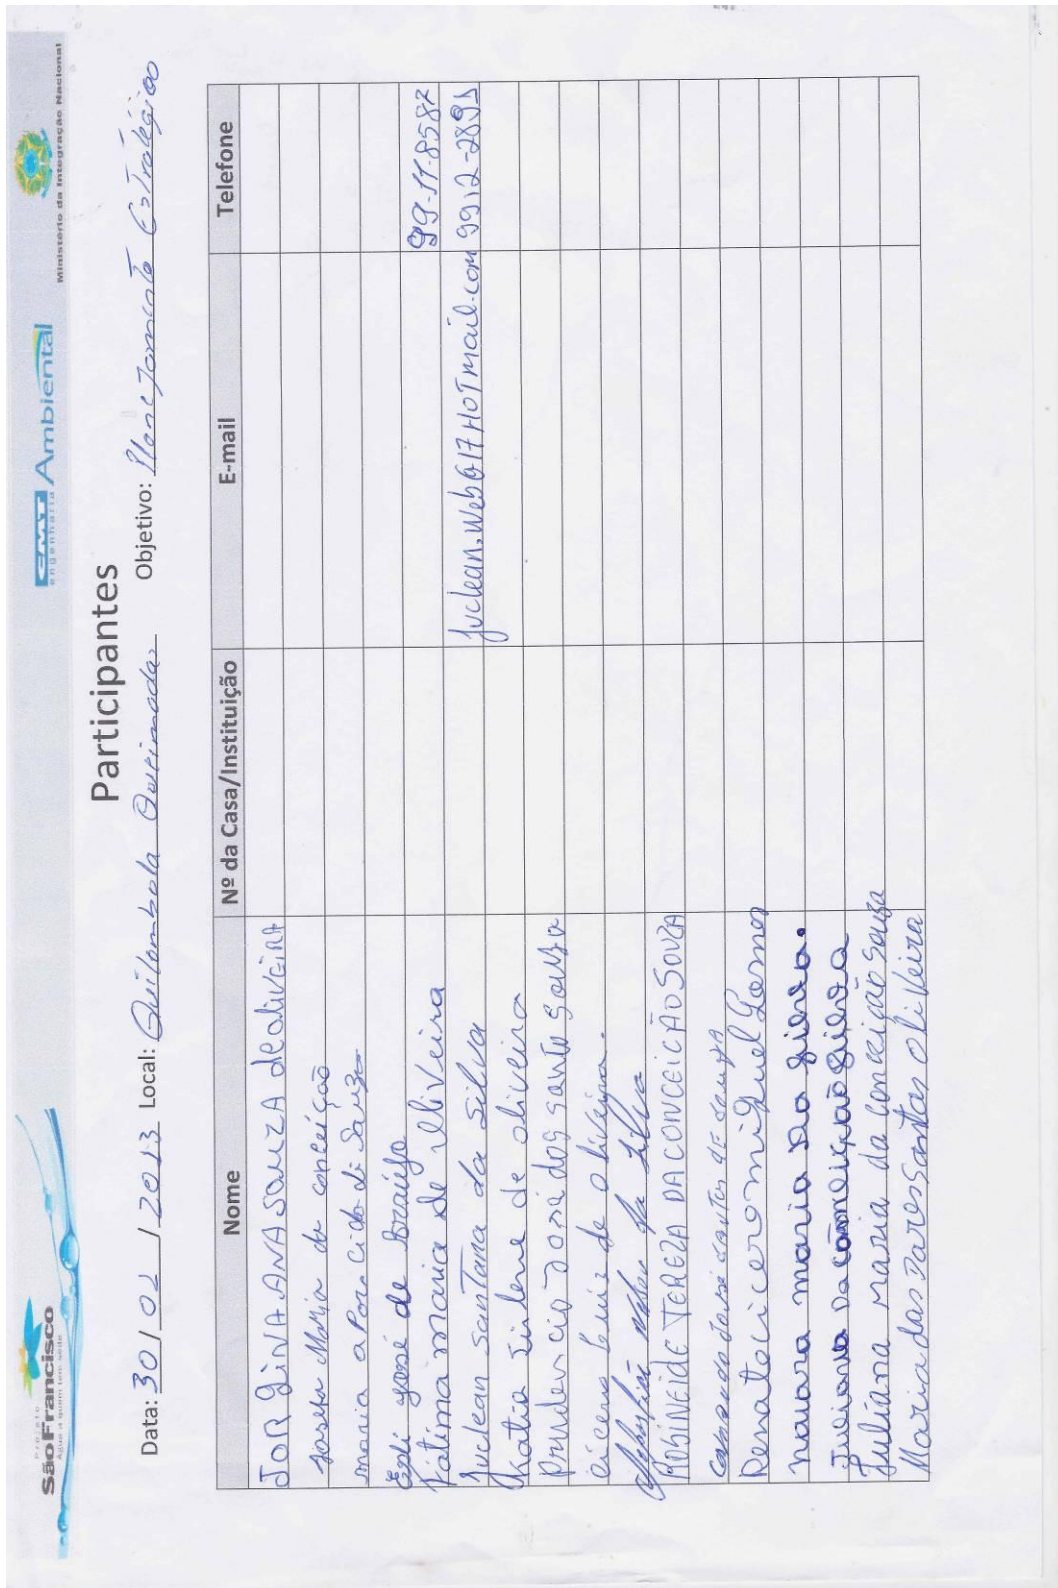 Projeto
São Francisco
Água a quem tem sede
CMT Ambiental
engenharia
Ministério da Integração Nacional
Participantes
Data: 30/02/2013 Local: Quilombola Queimadas Objetivo: Planejamento Estratégico
Nome Nº da Casa/Instituição E-mail Telefone
JORGINA ANA SOUZA de OLIVEIRA
Josefa Maria da conceição
maria aParecida di Souza
Edi josé de Araújo 99-11-8587
Fátima maria de oliveira
Juclean Santana da Silva juclean.web617HOTmail.com 9912-2891
Katia Silene de oliveira
Prudencio José dos santo souza
cicero Luiz de oliveira.
da silva
ROSINEIDE TEREZA DA CONCEIÇÃO SOUZA
José santos de souza
Renato cicero miguel Gomes
naiara maria da silva.
Juliana da conceição silva
Juliana maria da conceição souza
Maria das Dores Santos oliveira